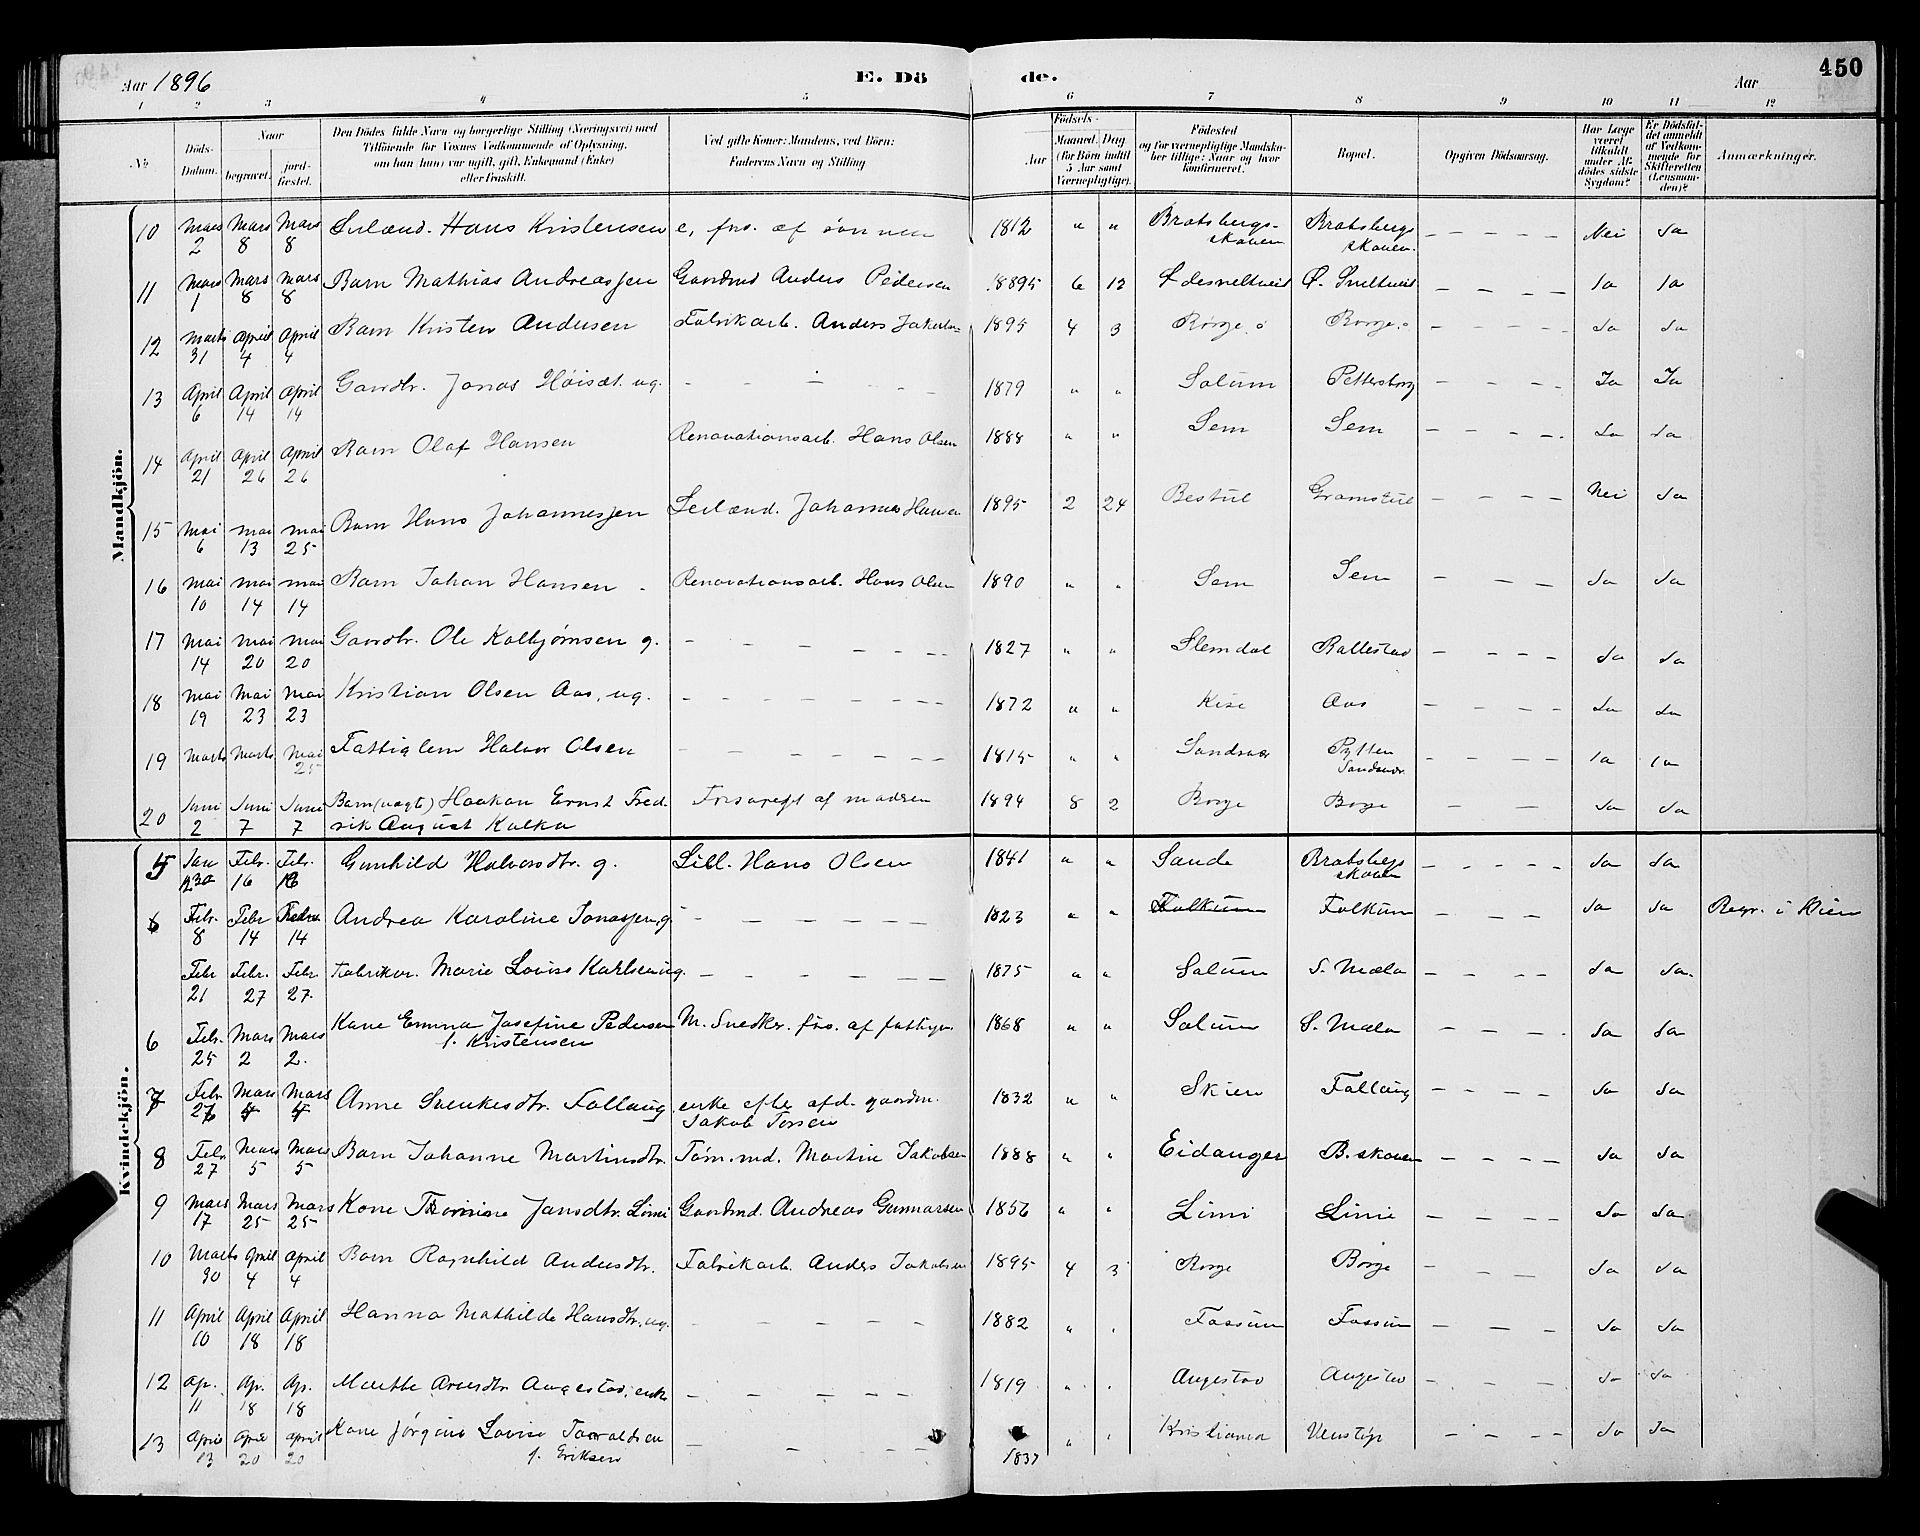 Aar 1896 E. Dö de. Aar 450
1 2 3 4 5 6 7 8 9 10 11 12
No. Döds-Datum. Naar begravet. jord-fæstet. Den Dödes fulde Navn og borgerlige Stilling (Næringsvei) med Tilföiende for Voxnes Vedkommende af Oplysning, om han (hun) var ugift, gift, Enkemand (Enke) eller fraskilt. Ved gifte Koner: Mandens, ved Börn: Faderens Navn og Stilling Födsels- Aar Maaned. Dag (for Börn indtil 5 Aar samt Værnepligtige). Födested og for værnepligtige Mandskaber tillige: Naar og hvor konfirmeret. Bopæl. Opgiven Dödsaarsag. Har Læge været tilkaldt under Afdödes sidste Sygdom? Er Dödsfaldet anmeldt af Vedkommende for Skifteretten (Lensmanden)? Anmærkninger.
Mandkjön.
10 Mars 2 Mars 8 Mars 8 Hans Kristensen e, fors. af sønnen 1812 " " Bratsbergskoven Bratsbergskoven. – – – – Nei Ja
11 Mars 1 Mars 8 Mars 8 Barn Mathias Andreassen Gaardmd Anders Pedersen 1895 6 12 Ø. Sneltveit – – – – Ja Ja
12 Marts 31 April 4 April 4 Barn Kristen Andersen Fabrikarb. Anders Jakobsen 1895 4 3 Borge ö Borge ö – – – – Ja Ja
13 April 6 April 14 April 14 Gaardbr. Jonas Höisæt. ug. – – – – 1879 " " Solum Pettersborg – – – – Ja Ja
14 April 21 April 26 April 26 Barn Olaf Hansen Renovationsarb. Hans Olsen 1888 " " Sem Sem – – – – Ja Ja
15 Mai 6 Mai 13 Mai 25 Barn Hans Johannessen Johannes Hansen 1895 2 24 Bestul Gramstul – – – – Nei Ja
16 Mai 10 Mai 14 Mai 14 Barn Johan Hansen Renovationsarb. Hans Olsen 1890 " " Sem Sem – – – Ja Ja
17 Mai 14 Mai 20 Mai 20 Gaardbr. Ole Kolbjørnsen g. – – – – – – 1827 " " Slemdal Ballestad – – – – Ja Ja
18 Mai 19 Mai 23 Mai 23 Kristian Olsen Aas, ug. – – – – – – 1872 " " Kise Aas – – – – Ja Ja
19 Marts Marts Mai 25 Fattiglem Halvor Olsen – – – – – – 1815 " " Sandsvær Pytten Sandsvær – – – – Ja Ja
20 Juni 2 Juni 7 Juni 7 Barn (uægte) Haakon Ernst Fred-
rik August Kalka Forsørget af moderen 1894 8 2 Borge Borge – – – Ja Ja
Kvindekjön.
5 Jan 30 Febr. 16 Febr. 16 Gunhild Halvorsdtr. g. Hans Olsen 1841 " " Sande Bratsbergskoven – – – – Ja Ja
6 Febr. 8 Febr 14 Febr 14 Andrea Karoline Jonassen, g – – – – – 1823 " " Falkum Falkum – – – – Ja Ja Begr. i Skien
Febr 21 Febr. 27 Febr 27. Marie Lovise Karlsen ug. – – – – – 1875 " " Solum S. Mæla – – – – Ja Ja.
6 Febr. 25 Mars 2 Mars 2. Kone Emma Josefine Pedersen
f. Kristensen M. Snedker. fors. af 1868 " " Solum S. Mæla – – – – Ja Ja
7 Febr 26 Mars 4 Mars 4 Anne Svenkesdtr. Follaug enke efter afd. gaardm.
Jakob Torsen 1832 " " Skien Follaug – – – – Ja Ja
8 Febr 27 Mars 5 Mars 5 Barn Johanne Martinsdtr. Töm.md. Martin Jakobsen 1888 " " Eidanger B. skoven – – – – Ja Ja
9 Mars 17 Mars 25 Mars 25 Kone Jansdtr. Limi Gaardmd. Andreas Gunnarsen 1856 " " Limi Limi – – – – Ja Ja
10 Marts 30 April 4 April 4 Barn Ragnhild Andersdtr. Fabrikarb. Anders Jakobsen 1895 4 3 Borge Borge – – – Ja Ja
11 April 10 April 18 April 18 Hanna Mathilde Hansdtr. ug. – – – – – 1882 " " Fossum Fossum – – – Ja Ja
12 Ap. 11 Ap. 18 Ap. 18 Marthe Arnesdtr Augestad, enke – – – – – – 1819 " " Augestad Augestad – – – – Ja Ja
13 April 13 April 20 April 20 Kone Jørgine Lovise Taraldsen
f. Eriksen – – – – 1837 " " Kristiania Venstøp – – – – Ja Ja